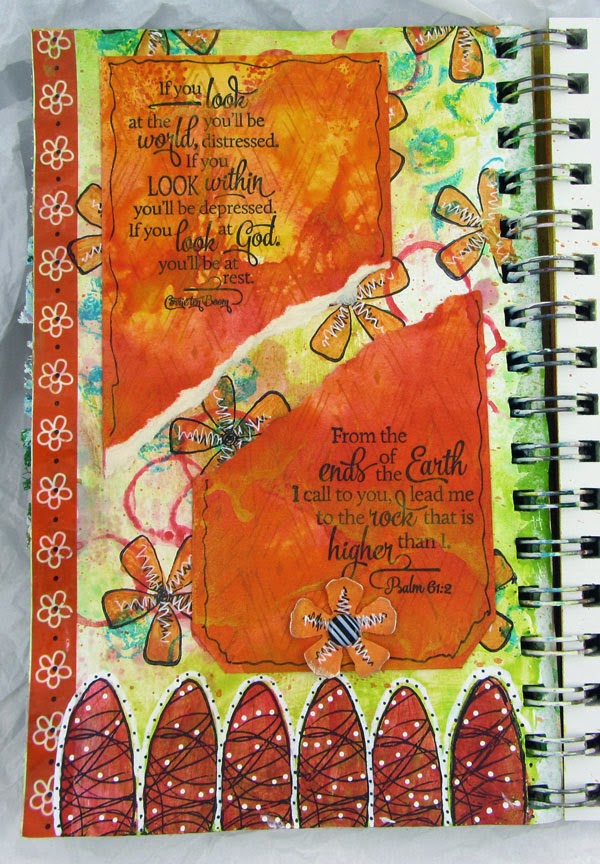 If you look
at the you'll be
world, distressed.
If you
LOOK within
you'll be depressed.
If you look at God.
you'll be at
rest.
Corrie ten Boom
From the
ends of the Earth
I call to you, lead me
to the rock that is
higher than I.
Psalm 61:2